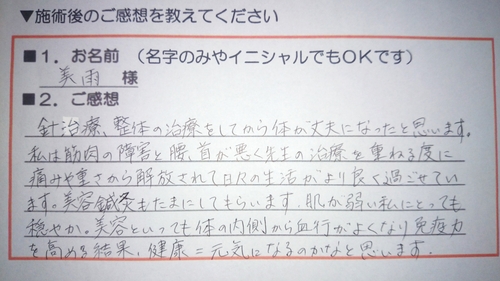 ▼施術後のご感想を教えてください
■1．お名前　（名字のみやイニシャルでもOKです）
美雨 様
■2．ご感想
針治療、整体の治療をしてから体が丈夫になったと思います。
私は筋肉の障害と腰、首が悪く先生の治療を重ねる度に
痛みや重さから解放されて日々の生活がより良く過ごせてい
ます。美容鍼灸もたまにしてもらいます。肌が弱い私にとっても
穏やか。美容といっても体の内側から血行がよくなり免疫力
を高める結果、健康＝元気になるのかなと思います。